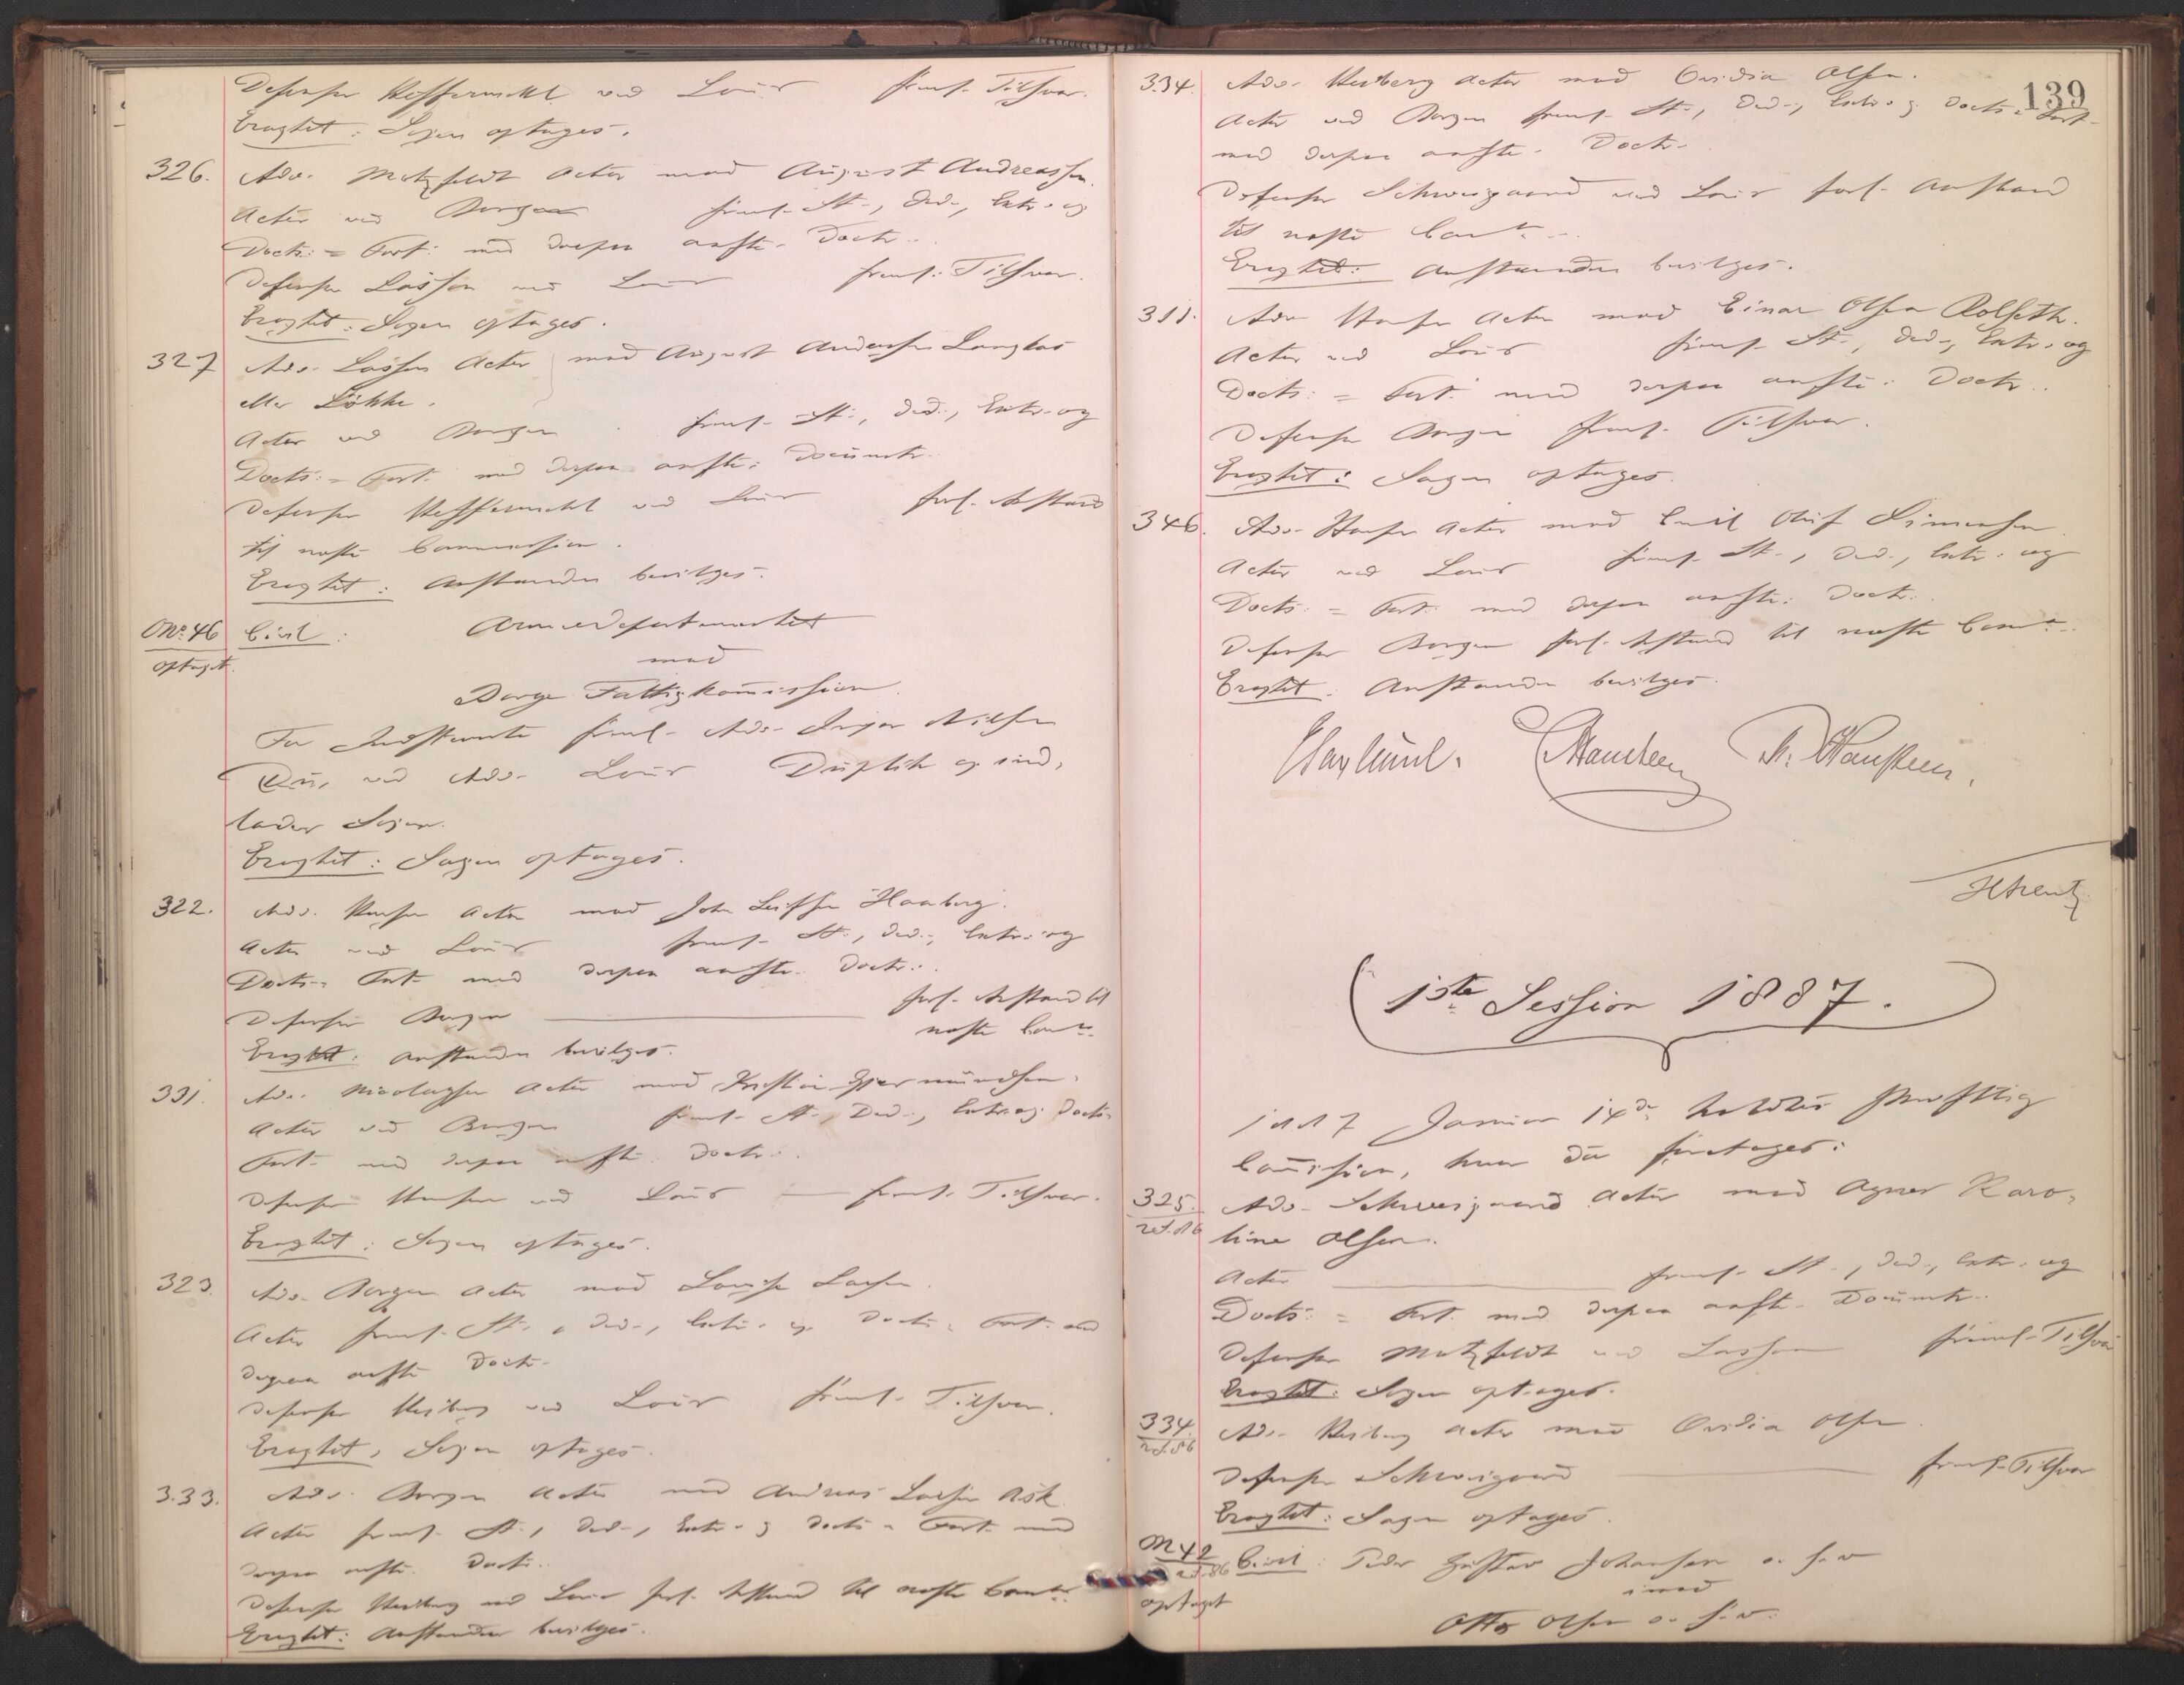 Defensor Heffermehl ved Louis freml. Tilsvar.
Eragtet: Sagen optages.
326. Adv. Motzfeldt Actor mod August Andreassen.
Actor ved Borgen freml. St., Ded., Extr. og
Docts. = Fort. med derpaa anfte. Doctr.
Defensor Lasson ved Louis freml. Tilsvar.
Eragtet: Sagen optages.
327 Adv. Lasson Actor mod August Andersen Langaas
eller Løkke.
Actor ved Borgen freml. St., Ded., Extr. og
Docts. = Fort. med derpaa anfte. Documtr.
Defensor Heffermehl ved Louis forl. Anstand
til næste Commission.
Eragtet: Anstanden bevilges.
No. 46 Civil: Armedepartementet
optaget.
mod
Borge Fattigkommission.
For Indstevnte freml. Adv. Nilsen
ved Adv. Louis Duplik og ind,
lader Sagen.
Eragtet: Sagen optages.
322. Adv. Hansen Actor mod John Leifsen Haaberg.
Actor ved Louis freml. St., Ded., Extr. og
Docts. = Fort. med derpaa anfte. Doctr.
Defensor Borgen forl. Anstand til
næste Comn.
Eragtet: Anstanden bevilges.
331. Adv. Nicolaysen Actor mod Kristian Gjermundsen.
Actor ved Borgen freml. St., Ded., Extr. og Docts.
Fort. med derpaa anfte. Doctr.
Defensor Hansen ved Louis freml. Tilsvar.
Eragtet: Sagen optages.
323. Adv. Borgen Actor mod Lovise Larsen.
Actor freml. St., Ded., Extr. og Docts. = Fort. med
derpaa anfte Doctr.
Defensor Heiberg ved Louis freml. Tilsvar.
Eragtet, Sagen optages.
333. Adv. Borgen Actor mod Andreas Larsen Ask.
Actor freml. St., Ded., Extr. og Docts. = Fort. med
derpaa anfte. Doctr.
Defensor Heiberg ved Louis forl. Anstand til næste Comn.
Eragtet: Anstanden bevilges.
139
334. Adv. Heiberg Actor mod Ovidia Olsen.
Actor ved Borgen freml. St., Ded., Extr. og Docts. = Fort.
med derpaa anfte. Doctr.
Defensor Schweigaard ved Louis forl. Anstand
til næste Comn.
Eragtet: Anstanden bevilges.
311. Adv. Hansen Actor mod Einar Olsen Rolseth.
Actor ved Louis freml. St., Ded., Extr. og
Docts. = Fort. med derpaa anfte. Doctr.
Defensor Borgen freml. Tilsvar.
Eragtet: Sagen optages.
346. Adv. Hansen Actor mod Emil Oluf Simensen
Actor ved Louis freml. St., Ded., Extr. og
Docts. = Fort. med derpaa anfte. Doctr.
Defensor Borgen forl. Anstand til næste Comn.
Eragtet: Anstanden bevilges.
Haxlund. Hansteen H. Hansteen.
1ste Session 1887.
1887 Januar 14de holdtes
Commission, hvor da foretoges:
325. Adv. Schweigaard Actor mod Agnes Karo-
ref. 86 line Olsen.
Actor freml. St., Ded., Extr. og
Docts. = Fort. med derpaa anfte. Documtr.
Defensor Motzfeldt ved Lasson freml. Tilsvar
Eragtet: Sagen optages.
334. Adv. Heiberg Actor mod Ovidia Olsen
ref. 86
Defensor Schweigaard freml. Tilsvar
Eragtet: Sagen optages.
No 42 Civil: Peder Gustav Johansen o. s. v
ref. 86
imod
optaget
Otto Olsen o. s. v.